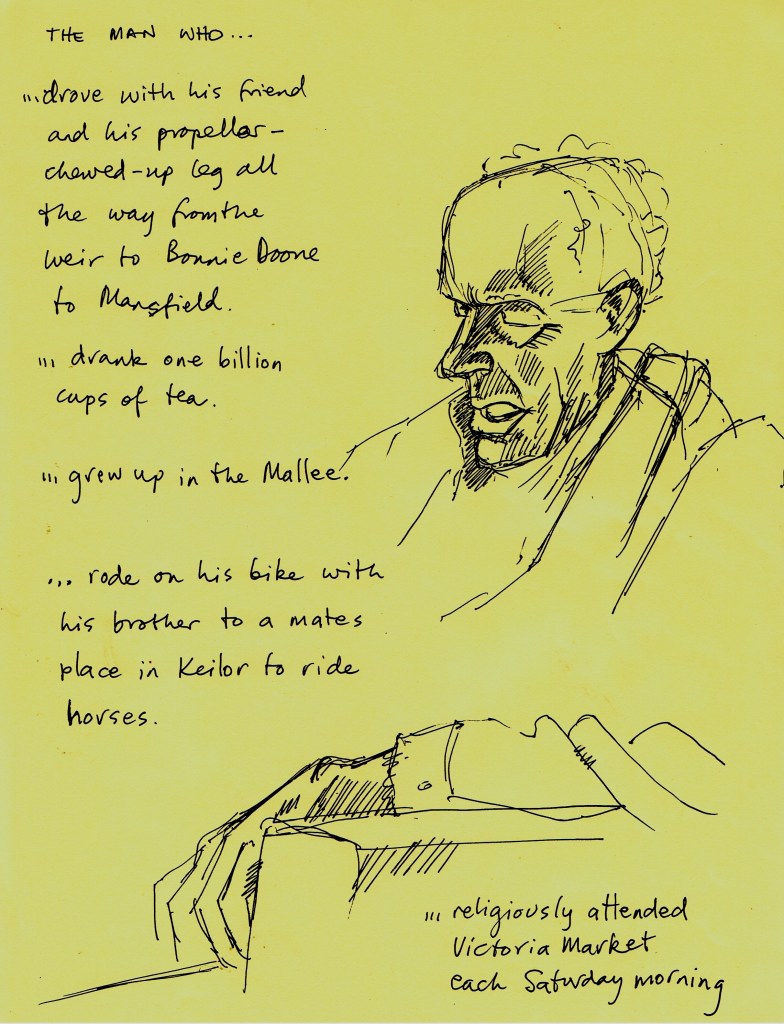 THE MAN WHO...
...drove with his friend
and his propellor-
chewed-up leg all
the way from the
weir to Bonnie Doone
to Mansfield.
... drank one billion
cups of tea.
... grew up in the Mallee.
... rode on his bike with
his brother to a mates
place in Keilor to ride
horses.
... religiously attended
Victoria Market
each Saturday morning